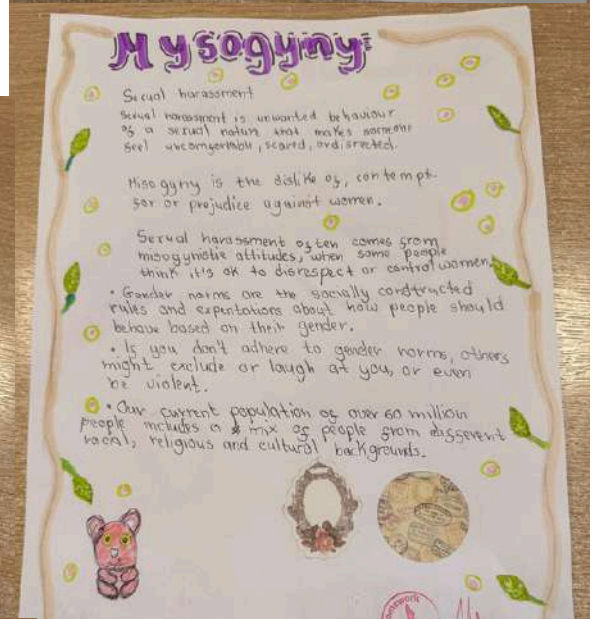 Mysogyny
Sexual harassment
Sexual harassment is unwanted behaviour
of a sexual nature that makes someone
feel uncomfortable, scared, or
Misogyny is the dislike of, contempt
for or prejudice against women.
Sexual harassment often comes from
misogynistic attitudes, when some people
think it's ok to disrespect or control women.
• Gender norms are the socially constructed
rules and expentations about how people should
behave based on their gender.
• If you don't adhere to gender norms, others
might exclude or laugh at you, or even
be violent.
• Our current population of over 60 million
people includes a mix of people from different
racial, religious and cultural backgrounds.